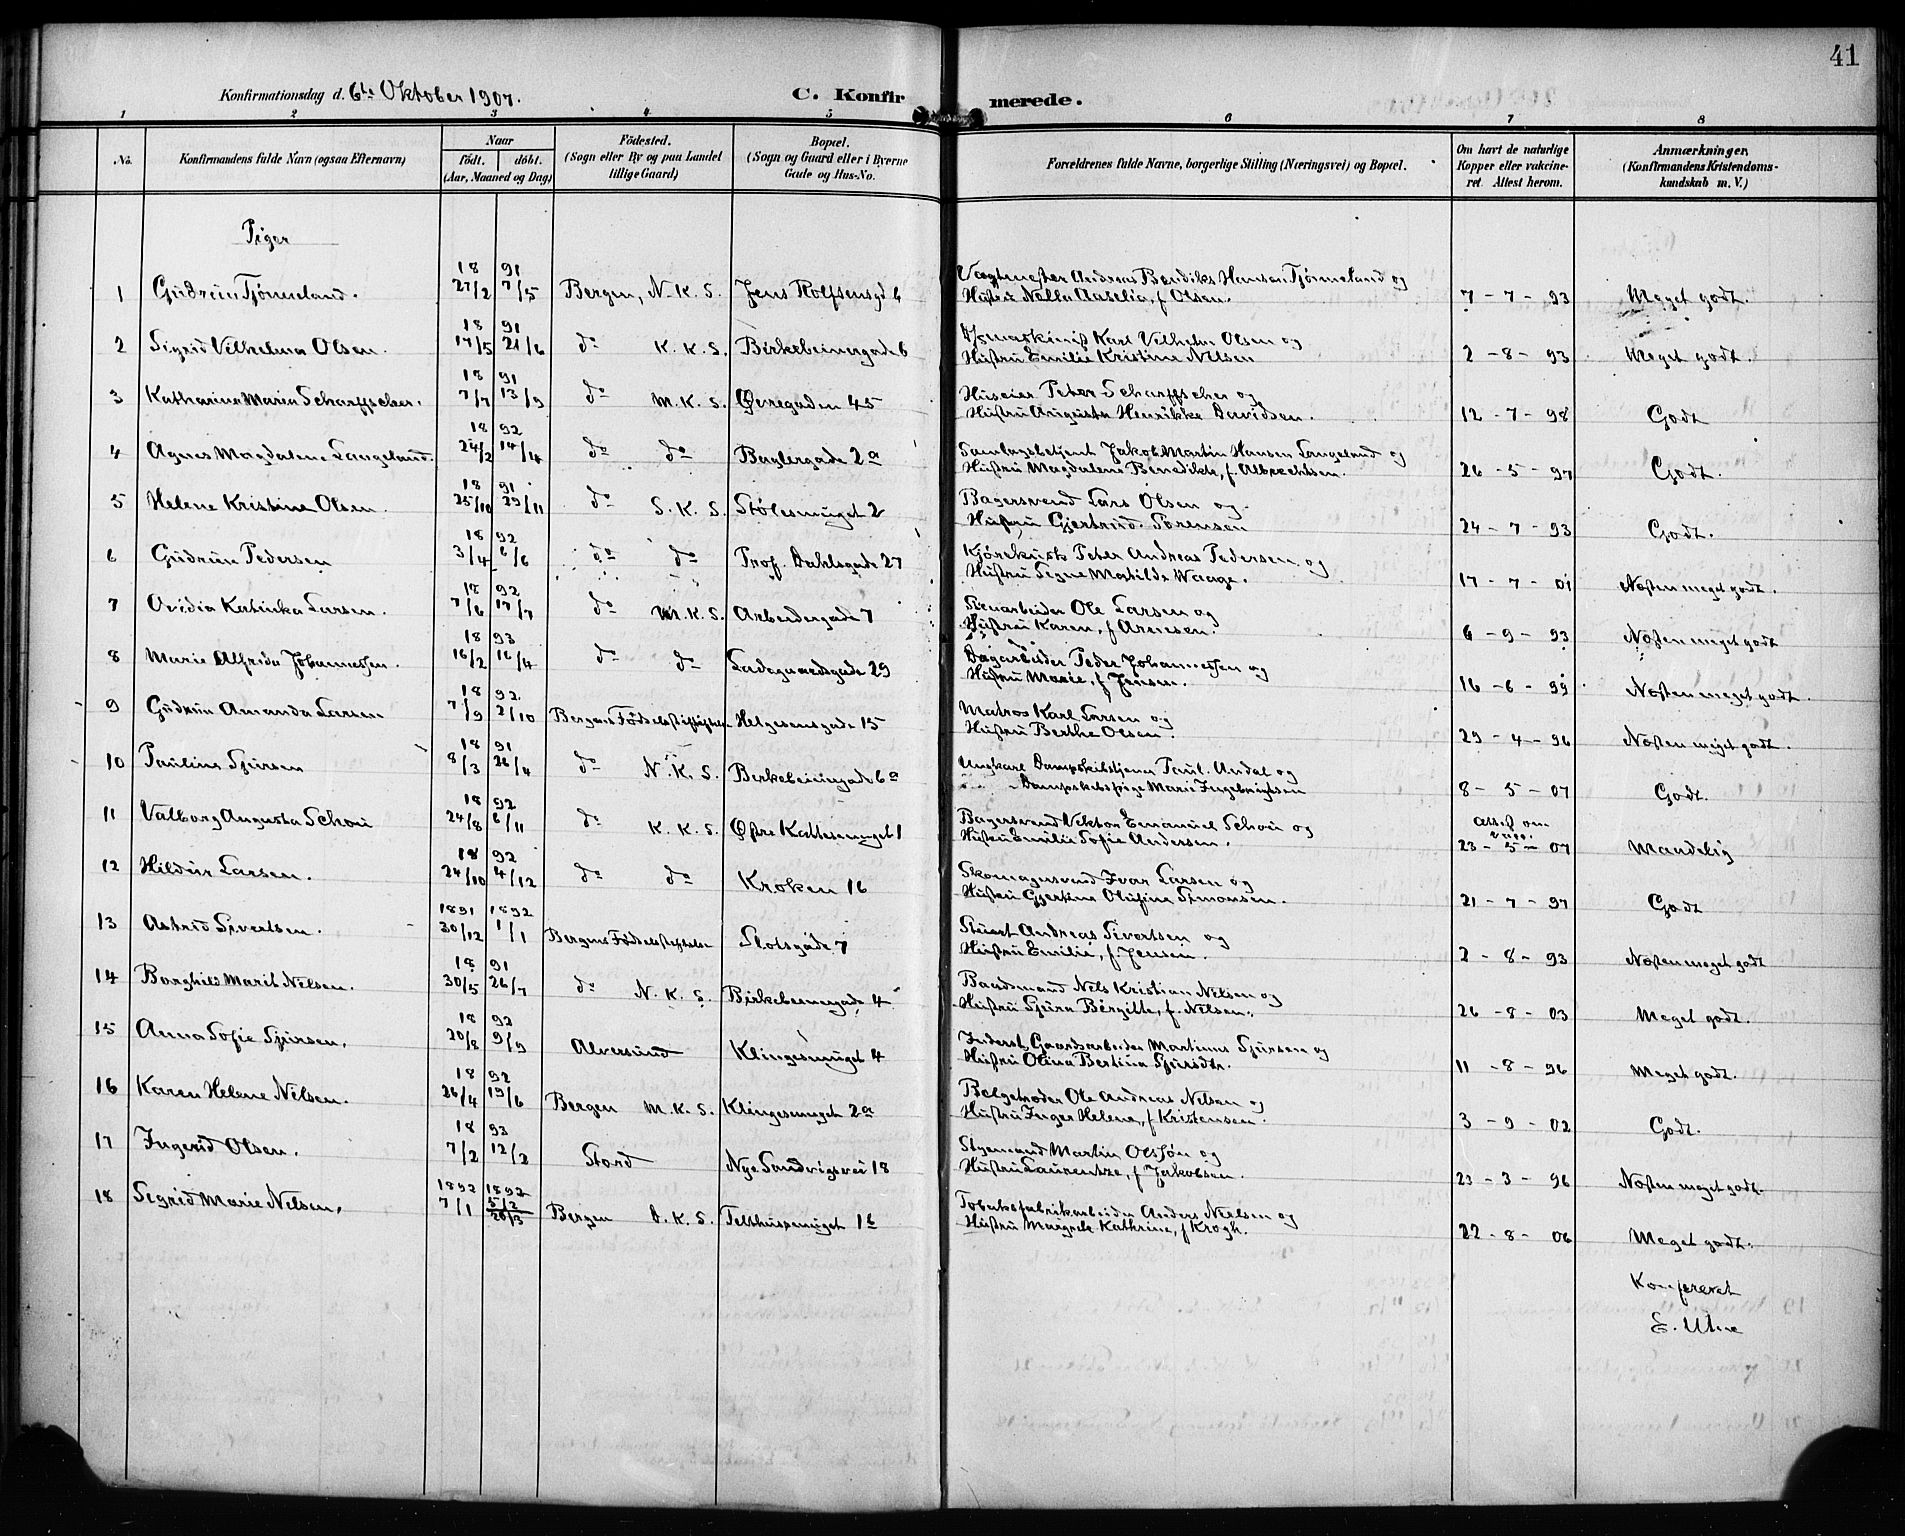 41
Konfirmationsdag d. 6te Oktober 1907.
C. Konfirmerede.
1 2 3 4 5 6 7 8
No.
Konfirmandens fulde Navn (ogsaa Efternavn)
Naar
født. døbt.
(Aar, Maaned og Dag)
Fødested.
(Sogn eller By og paa Landet
tillige Gaard)
Bopæl.
(Sogn og Gaard eller i Byerne
Gade og Hus-No.
Forældrenes fulde Navne, borgerlige Stilling (Næringsvei) og Bopæl.
Om havt de naturlige
Kopper eller vakcine-
ret. Attest herom.
Anmærkninger,
(Konfirmandens Kristendoms-
kundskab m. V.)
Piger
18 91
1 Gudrun Tjønneland. 27/2 7/5 Bergen, N.K.S. Jens Rolfsensgd 6 Vægtmester Andreas Bendiks Hansen Tjønneland og
Hustru Nella Aurelia, f. Olsen. 7-7-93 Meget godt.
18 91
2 Sigrid Vilhelmina Olsen. 17/5 21/6 do K.K.S. Birkebeinergade 6 Karl Vilhelm Olsen og
Hustru Emilie Kristine Nilsen 2-8-93 Meget godt.
18 91
3 Katharine Marie Scharffscher. 7/7 13/9 do M.K.S. Øvregaden 45 Huseier Peter Scharffscher og
Hustru Augusta Henrikke Davidsen. 12-7-98 Godt
18 92
4 Agnes Magdalene Langeland. 24/2 14/4 do do Baglergade 2a Samlagsbetjent Jakob Martin Hansen Langeland og
Hustru Magdalene Benedikte, f. Albrechtsen. 26-5-97 Godt.
18 91
5 Helene Kristine Olsen. 25/10 29/11 do S.K.S. Stølesmuget 2 Bagersvend Lars Olsen og
Hustru Gjertrud Sørensen 24-7-93 Godt.
18 92
6 Gudrun Pedersen 3/4 6/6 do do Prof. Dahlsgade 27 Kjørekusk Peter Andreas Pedersen og
Hustru Signe Matilde Waage. 17-7-01 Næsten meget godt.
18 92
7 Ovidia Katinka Larsen. 7/6 17/7 do M.K.S. Arbeidergade 7 Ole Larsen og
Hustru Karen, f Arnesen. 6-9-93 Næsten meget godt
18 93
8 Marie Alfrida Johannessen. 16/2 16/4 do do Ladegaardsgade 29 Dagarbeider Peder Johannessen og
Hustru Marie, f Jensen. 16-6-99 Næsten meget godt.
18 92
9 Gudrun Amanda Larsen 7/9 2/10 Bergens Fødselsstiftelse Helgesensgade 15 Matros Karl Larsen og
Hustru Berthe Olsen. 29-4-96 Næsten meget godt.
18 91
10 Pauline Sjursen 8/3 26/4 do N.K.S. Birkebeinergade 6a Ungkarl Dampskibstjener Paul Andal og
Dampskibspige Marie Ingebrigtsen 8-5-07 Godt.
18 92
11 Valborg Augusta Schou 24/8 6/11 do K.K.S. Østre Kattesmuget 1 Bagersvend Viktor Emanuel Schou og
Hustru Emilie Sofie Andersen. Attest om
23-5-07 Maadelig
18 92
12 Hildur Larsen. 24/10 4/12 do do Kroken 16 Skomagersvend Ivar Larsen og
Hustru Gjertine Olufine Simonsen. 21-7-97 Godt
1891 1892
13 Astrid Sivertsen. 30/12 1/1 Bergens Fødselsstiftelse Slotsgade 7 Stuert Andreas Sivertsen og
Hustru Emilie, f. Jensen. 2-8-93 Næsten meget godt
18 91
14 Borghild Marit Nilsen. 30/5 26/7 do N.K.S. Birkebeinergade 4 Baadsmand Nils Kristian Nilsen og
Hustru Sjura Birgitte, f. Nilsen. 26-8-03 Meget godt.
18 92
15 Anna Sofie Sjursen. 20/8 9/9 Alversund Klingesmuget 4 Inderst Gaardsarbeider Martinus Sjursen og
Hustru Olina Bertina Sjursdtr. 11-8-96 Meget godt.
18 92
16 Karen Helene Nilsen. 26/4 19/6 Bergen M.K.S. Klingesmuget 2a Belgetræder Ole Andreas Nilsen og
Hustru Inger Helene, f Kristensen. 3-9-02 Godt.
18 93
17 Ingerid Olsen. 7/2 12/2 Stord Nye Sandvigsvei 18 Styrmand Martin Olsson og
Hustru Laurentze, f Jakobsen. 23-3-96 Næsten meget godt.
1892 1892
18 Sigrid Marie Nilsen. 7/1 5/2 20/3 Bergen D.K.S. Telthussmuget 1b Tobaksfabrikarbeider Anders Nielsen og
Hustru Margrete Kathrine, f Krogh. 22-8-06 Meget godt.
Konfereret
E.